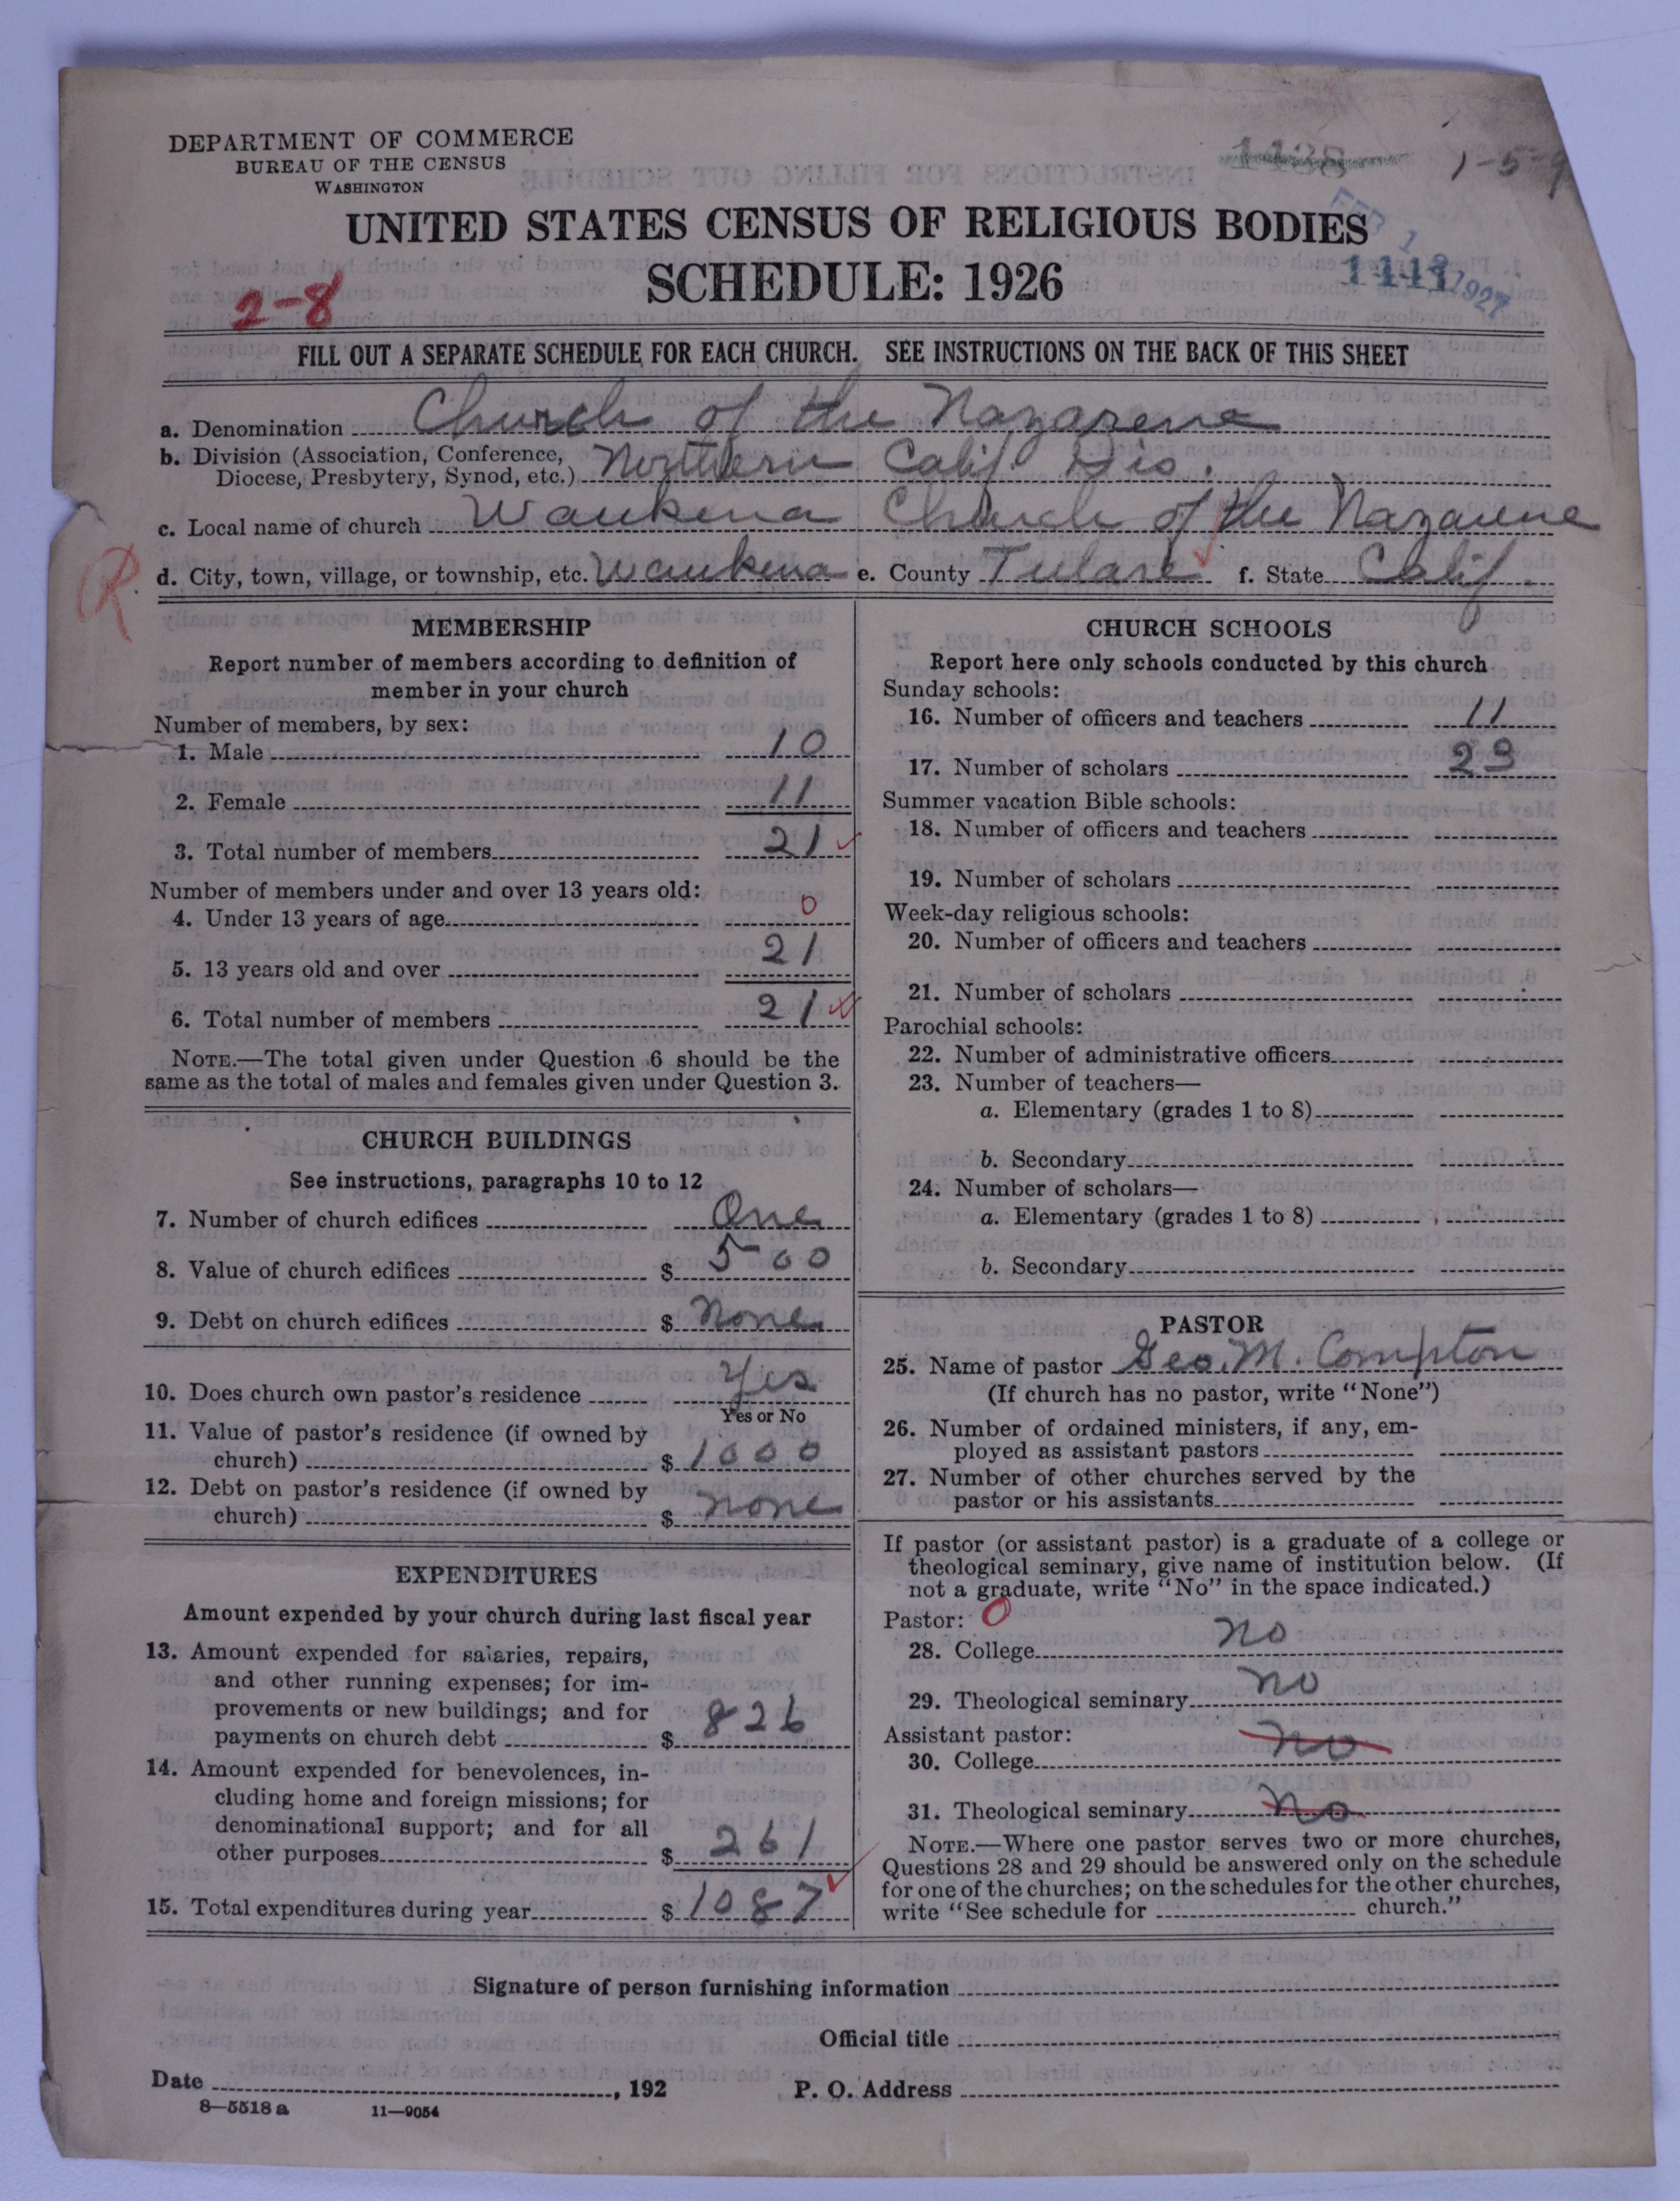 DEPARTMENT OF COMMERCE
BUREAU OF THE CENSUS
WASHINGTON
1438
1-5-9
UNITED STATES CENSUS OF RELIGIOUS BODIES
SCHEDULE: 1926
FEB 1 1927
2-8
FILL OUT A SEPARATE SCHEDULE FOR EACH CHURCH. SEE INSTRUCTIONS ON THE BACK OF THIS SHEET
a. Denomination Church of the Nazarene
b. Division (Association, Conference, Diocese, Presbytery, Synod, etc.) Northern Calif. Dis.
c. Local name of church Waukena Church of the Nazarene
d. City, town, village, or township, etc. Waukena e. County Tulare f. State Calif.
R
MEMBERSHIP
Report number of members according to definition of
member in your church
Number of members, by sex:
1. Male 10
2. Female 11
3. Total number of members 21
Number of members under and over 13 years old:
4. Under 13 years of age 0
5. 13 years old and over 21
6. Total number of members 21
NOTE.—The total given under Question 6 should be the
same as the total of males and females given under Question 3.
CHURCH BUILDINGS
See instructions, paragraphs 10 to 12
7. Number of church edifices One
8. Value of church edifices $ 500
9. Debt on church edifices $ None
10. Does church own pastor's residence Yes
Yes or No
11. Value of pastor's residence (if owned by
church) $ 1000
12. Debt on pastor's residence (if owned by
church) $ none
EXPENDITURES
Amount expended by your church during last fiscal year
13. Amount expended for salaries, repairs,
and other running expenses; for im-
provements or new buildings; and for
payments on church debt $ 826
14. Amount expended for benevolences, in-
cluding home and foreign missions; for
denominational support; and for all
other purposes $ 261
15. Total expenditures during year $ 1087
CHURCH SCHOOLS
Report here only schools conducted by this church
Sunday schools:
16. Number of officers and teachers 11
17. Number of scholars 23
Summer vacation Bible schools:
18. Number of officers and teachers
19. Number of scholars
Week-day religious schools:
20. Number of officers and teachers
21. Number of scholars
Parochial schools:
22. Number of administrative officers
23. Number of teachers—
a. Elementary (grades 1 to 8)
b. Secondary
24. Number of scholars—
a. Elementary (grades 1 to 8)
b. Secondary
PASTOR
25. Name of pastor Geo. M. Compton
(If church has no pastor, write "None")
26. Number of ordained ministers, if any, em-
ployed as assistant pastors
27. Number of other churches served by the
pastor or his assistants
If pastor (or assistant pastor) is a graduate of a college or
theological seminary, give name of institution below. (If
not a graduate, write "No" in the space indicated.)
Pastor: 0
28. College no
29. Theological seminary no
Assistant pastor:
30. College no
31. Theological seminary no
NOTE.—Where one pastor serves two or more churches,
Questions 28 and 29 should be answered only on the schedule
for one of the churches; on the schedules for the other churches,
write "See schedule for church."
Signature of person furnishing information
Official title
Date , 192 P. O. Address
8—5518 a 11—9054